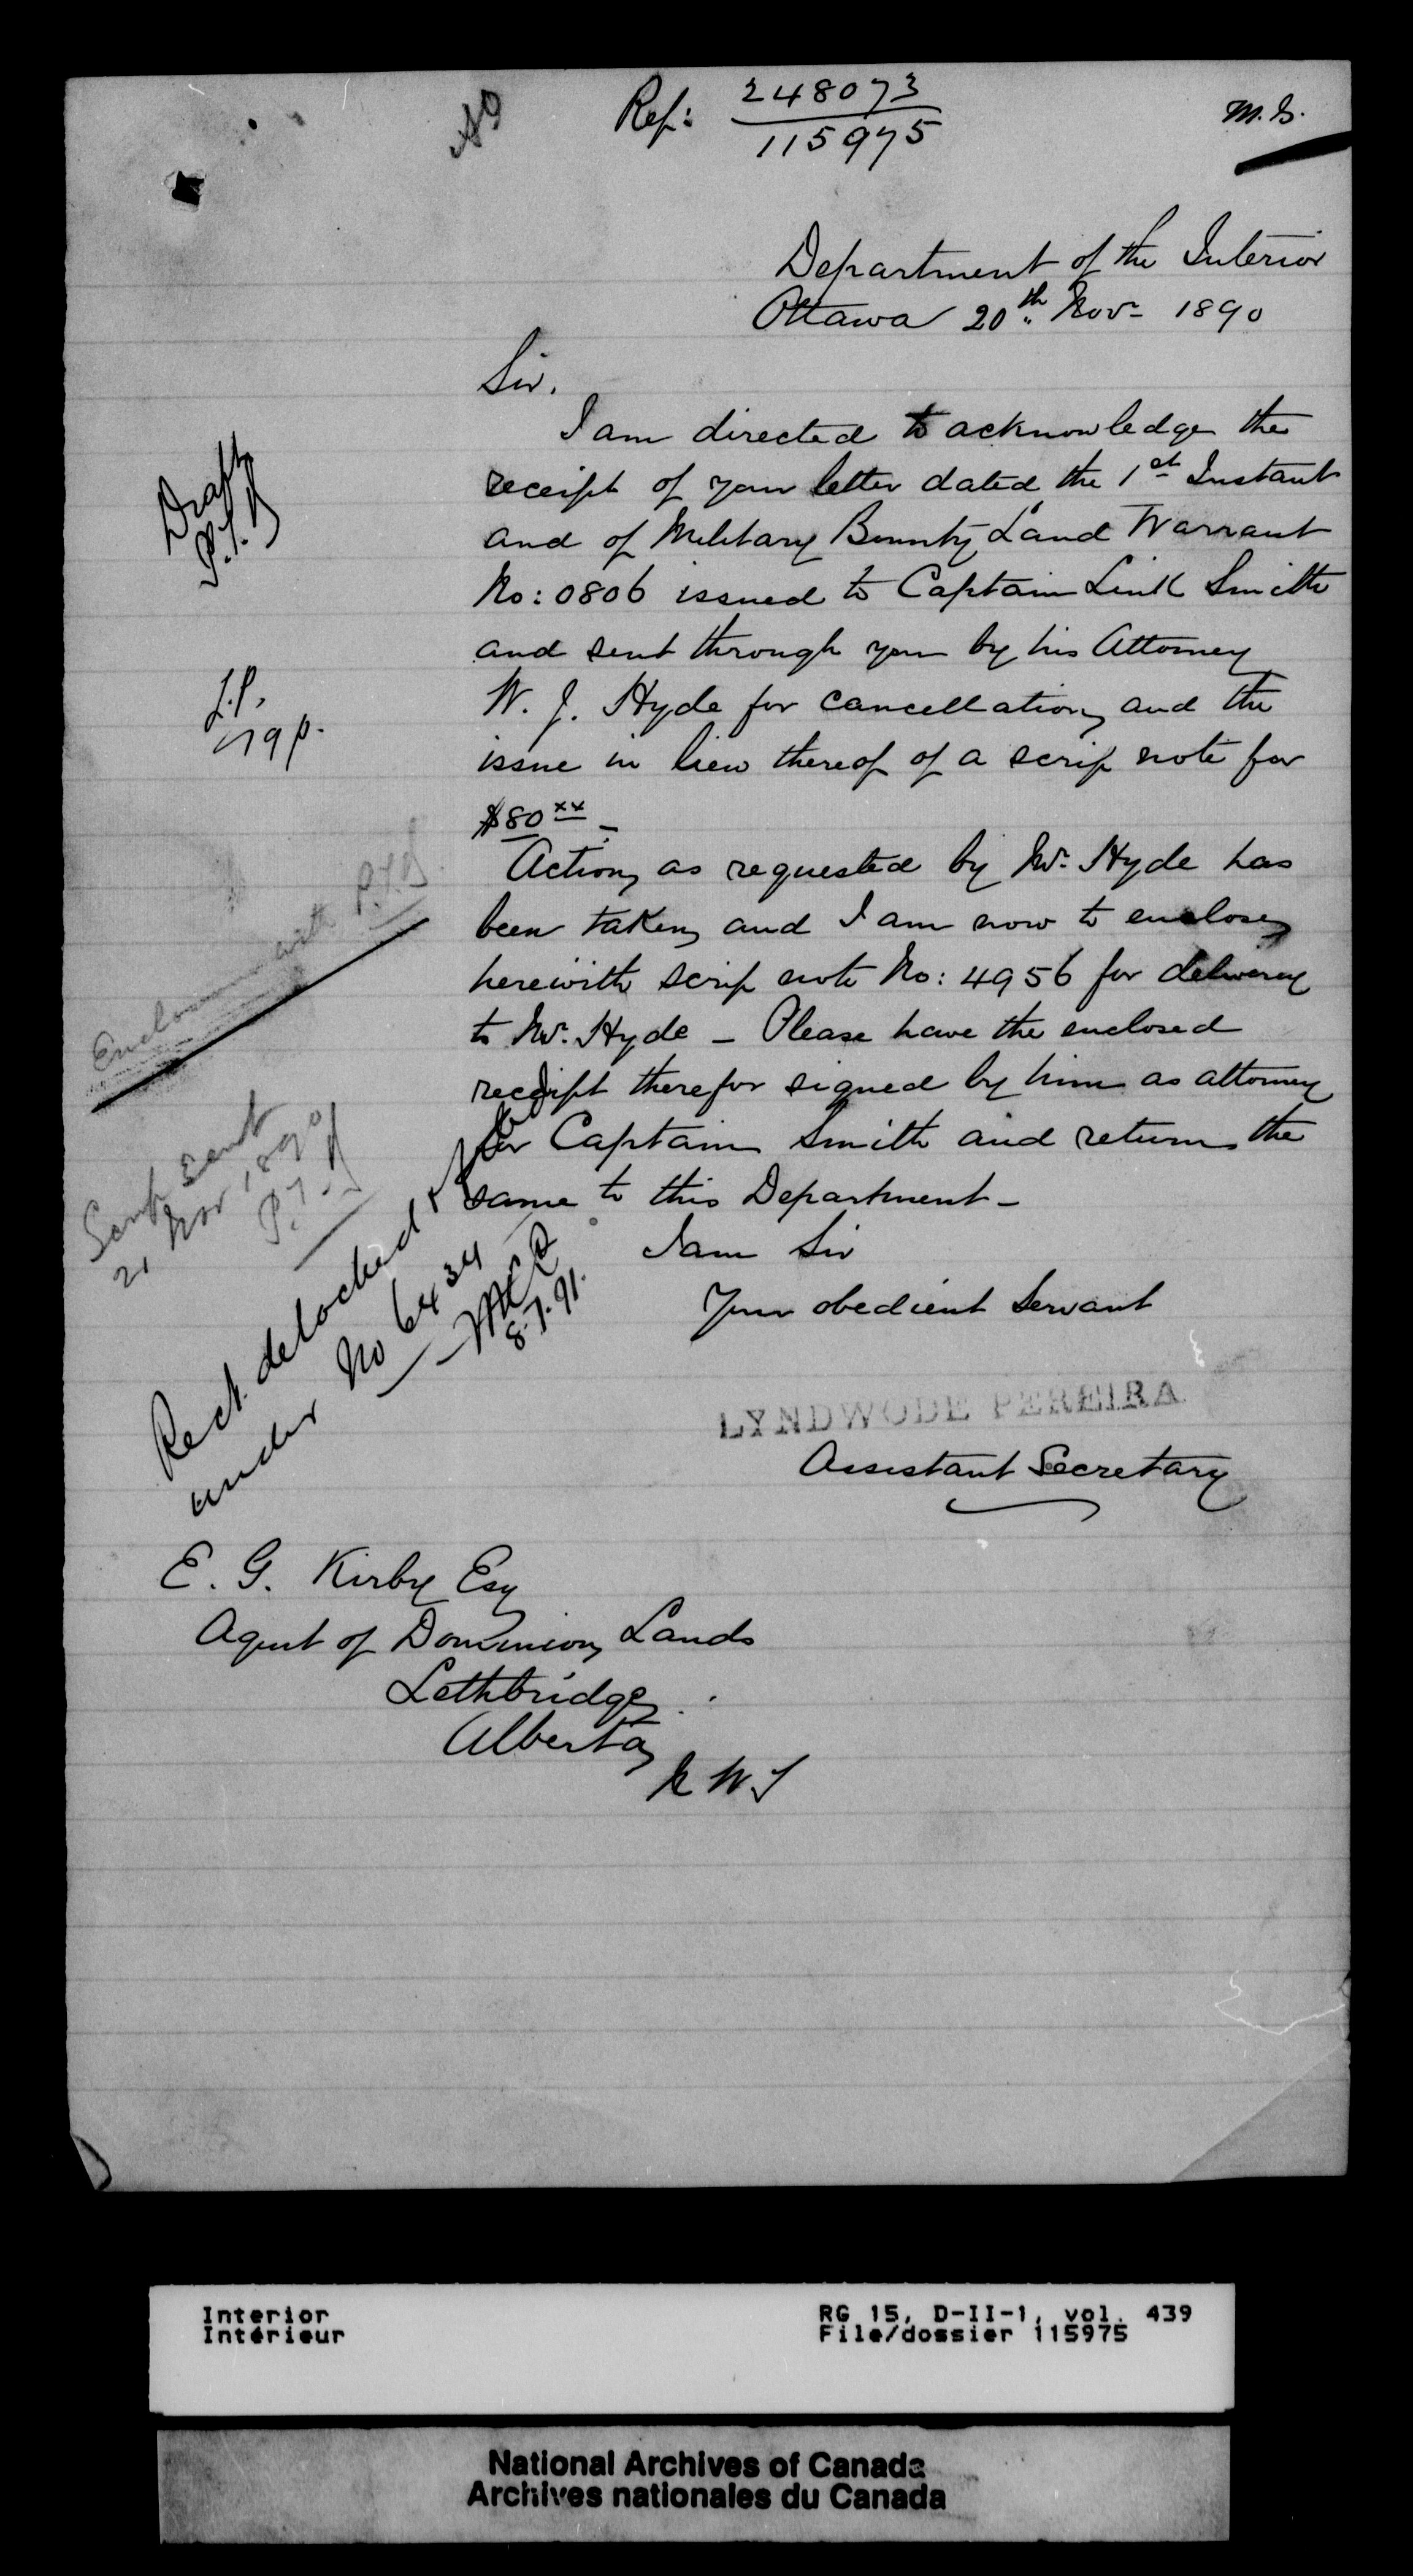 Ref: 248073
115975
M.S.
Department of the Interior
Ottawa 20th Nov. 1890
Sir.
I am directed to acknowledge the
receipt of your letter dated the 1st Instant
and of Military Bounty Land Warrant
No: 0806 issued to Captain Link Smith
and sent through you by his Attorney
W. J. Hyde for cancellation, and the
issue in lieu thereof of a scrip note for
$80 xx –
Action, as requested by Mr. Hyde has
been taken, and I am now to enclose,
herewith scrip note No: 4956 for delivery
to Mr. Hyde – Please have the enclosed
receipt therefor signed by him as attorney
for Captain Smith and return the
same to this Department –
I am Sir
Your obedient Servant
LYNDWODE PEREIRA
Assistant Secretary
Draft
L.P.
Enclosure with
Scrip sent
21 Nov 1890
Rect. detached &
under No 6434
8.7.91.
E. G. Kirby Esq
Agent of Dominion Lands
Lethbridge.
Alberta
N W T
Interior
Intérieur
RG 15, D-II-1, vol. 439
File/dossier 115975
National Archives of Canada
Archives nationales du Canada